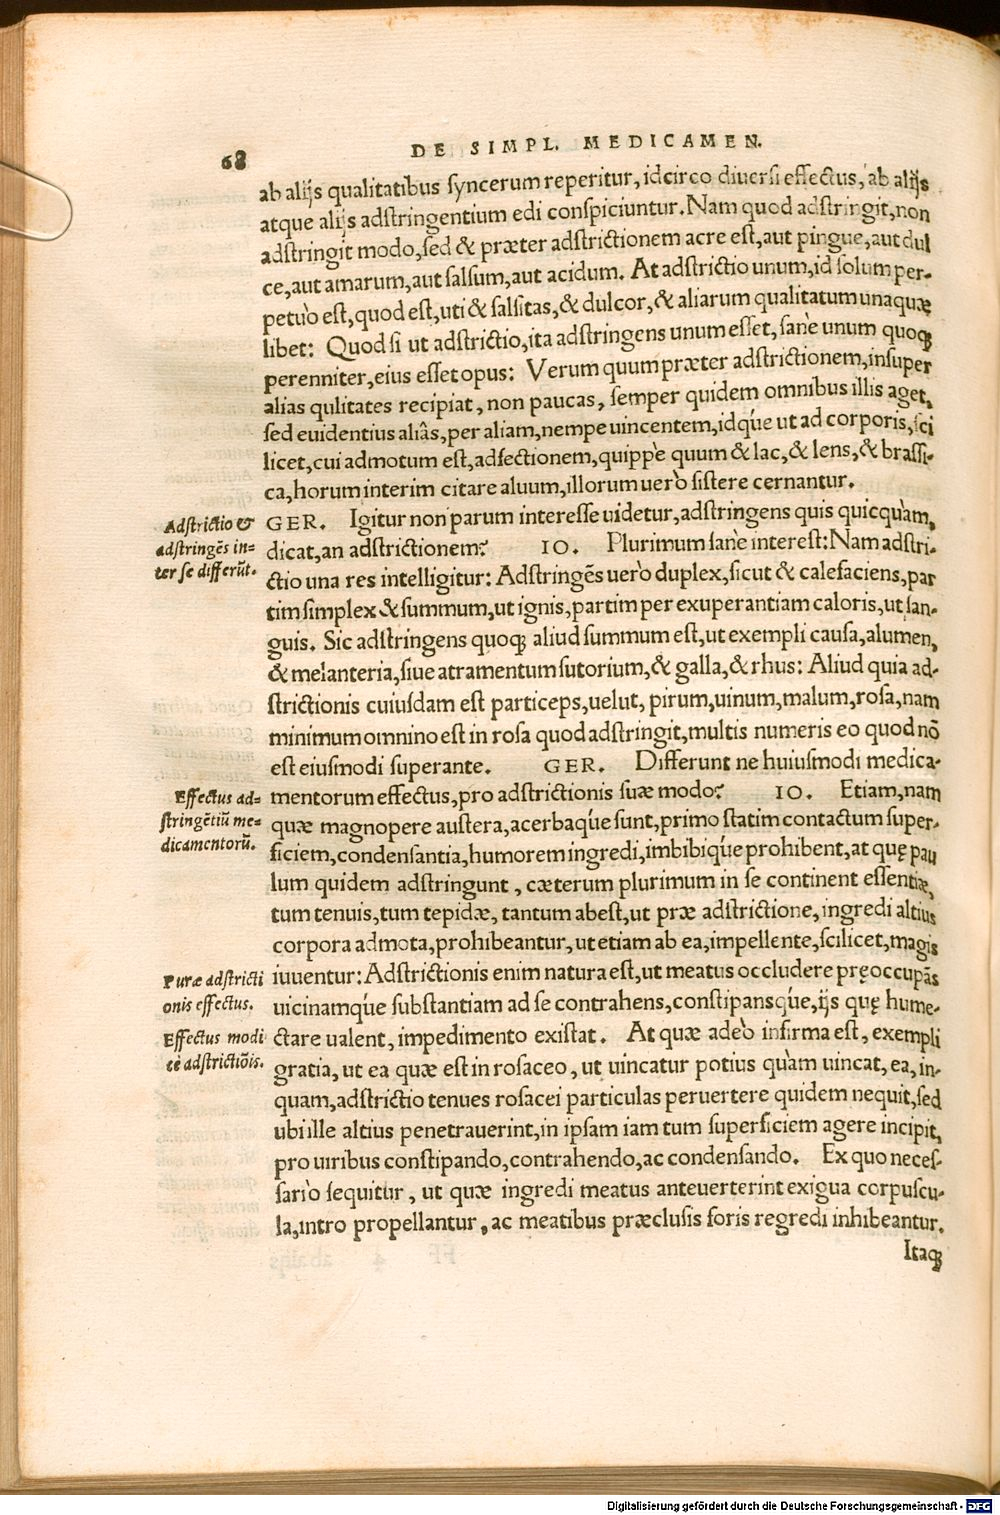 68
DE SIMPL. MEDICAMEN.
ab alijs qualitatibus syncerum reperitur, idcirco diuersi effectus, ab alijs
atque alijs adstringentium edi conspiciuntur. Nam quod adstringit, non
adstringit modo, sed & præter adstrictionem acre est, aut pingue, aut dul
ce, aut amarum, aut salsum, aut acidum. At adstrictio unum, id solum per-
petuò est, quod est, uti & salsitas, & dulcor, & aliarum qualitatum unaquæ
libet: Quod si ut adstrictio, ita adstringens unum esset, sanè unum quoq;
perenniter, eius esset opus: Verum quum præter adstrictionem, insuper
alias qulitates recipiat, non paucas, semper quidem omnibus illis aget,
sed euidentius aliâs, per aliam, nempe uincentem, idq́ue ut ad corporis, sci
licet, cui admotum est, adfectionem, quippè quum & lac, & lens, & brassi-
ca, horum interim citare aluum, illorum uerò sistere cernantur.
Adstrictio &
adstringēs in=
ter se differūt.
GER. Igitur non parum interesse uidetur, adstringens quis quicquàm,
dicat, an adstrictionem? IO. Plurimum sanè interest: Nam adstri-
ctio una res intelligitur: Adstringēs uerò duplex, sicut & calefaciens, par
tim simplex & summum, ut ignis, partim per exuperantiam caloris, ut san-
guis. Sic adstringens quoq; aliud summum est, ut exempli causa, alumen,
& melanteria, siue atramentum sutorium, & galla, & rhus: Aliud quia ad-
strictionis cuiusdam est particeps, uelut, pirum, uinum, malum, rosa, nam
minimum omnino est in rosa quod adstringit, multis numeris eo quod nō
est eiusmodi superante. GER. Differunt ne huiusmodi medica-
Effectus ad=
stringētiū me=
dicamentorū.
mentorum effectus, pro adstrictionis suæ modo? IO. Etiam, nam
quæ magnopere austera, acerbaq́ue sunt, primo statim contactum super-
ficiem, condensantia, humorem ingredi, imbibiq́ue prohibent, at quę pau
lum quidem adstringunt, cæterum plurimum in se continent essentiæ,
tum tenuis, tum tepidæ, tantum abest, ut præ adstrictione, ingredi altius
corpora admota, prohibeantur, ut etiam ab ea, impellente, scilicet, magis
Puræ adstricti
onis effectus.
iuuentur: Adstrictionis enim natura est, ut meatus occludere pręoccupās
uicinamq́ue substantiam ad se contrahens, constipansq́ue, ijs quę hume-
Effectus modi
cè adstrictiōis.
ctare ualent, impedimento existat. At quæ adeò infirma est, exempli
gratia, ut ea quæ est in rosaceo, ut uincatur potius quàm uincat, ea, in-
quam, adstrictio tenues rosacei particulas peruertere quidem nequit, sed
ubi ille altius penetrauerint, in ipsam iam tum superficiem agere incipit,
pro uiribus constipando, contrahendo, ac condensando. Ex quo neces-
sariò sequitur, ut quæ ingredi meatus anteuerterint exigua corpuscu-
la, intro propellantur, ac meatibus præclusis foris regredi inhibeantur.
Itaq;
Digitalisierung gefördert durch die Deutsche Forschungsgemeinschaft - DFG